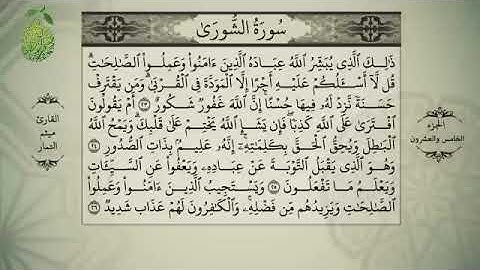 سُورَةُ الشُّورَىٰ
ذَٰلِكَ ٱلَّذِى يُبَشِّرُ ٱللَّهُ عِبَادَهُ ٱلَّذِينَ ءَامَنُوا۟ وَعَمِلُوا۟ ٱلصَّٰلِحَٰتِ ۗ
قُل لَّآ أَسْـَٔلُكُمْ عَلَيْهِ أَجْرًا إِلَّا ٱلْمَوَدَّةَ فِى ٱلْقُرْبَىٰ ۗ وَمَن يَقْتَرِفْ
حَسَنَةً نَّزِدْ لَهُۥ فِيهَا حُسْنًا ۚ إِنَّ ٱللَّهَ غَفُورٌ شَكُورٌ ٢٣ أَمْ يَقُولُونَ
ٱفْتَرَىٰ عَلَى ٱللَّهِ كَذِبًا ۖ فَإِن يَشَإِ ٱللَّهُ يَخْتِمْ عَلَىٰ قَلْبِكَ ۗ وَيَمْحُ ٱللَّهُ
ٱلْبَٰطِلَ وَيُحِقُّ ٱلْحَقَّ بِكَلِمَٰتِهِۦٓ ۚ إِنَّهُۥ عَلِيمٌۢ بِذَاتِ ٱلصُّدُورِ ٢٤
وَهُوَ ٱلَّذِى يَقْبَلُ ٱلتَّوْبَةَ عَنْ عِبَادِهِۦ وَيَعْفُوا۟ عَنِ ٱلسَّيِّـَٔاتِ
وَيَعْلَمُ مَا تَفْعَلُونَ ٢٥ وَيَسْتَجِيبُ ٱلَّذِينَ ءَامَنُوا۟ وَعَمِلُوا۟
ٱلصَّٰلِحَٰتِ وَيَزِيدُهُم مِّن فَضْلِهِۦ ۚ وَٱلْكَٰفِرُونَ لَهُمْ عَذَابٌ شَدِيدٌ ٢٦
الجزء
الخامس والعشرون
القارئ
ميثم
التمار